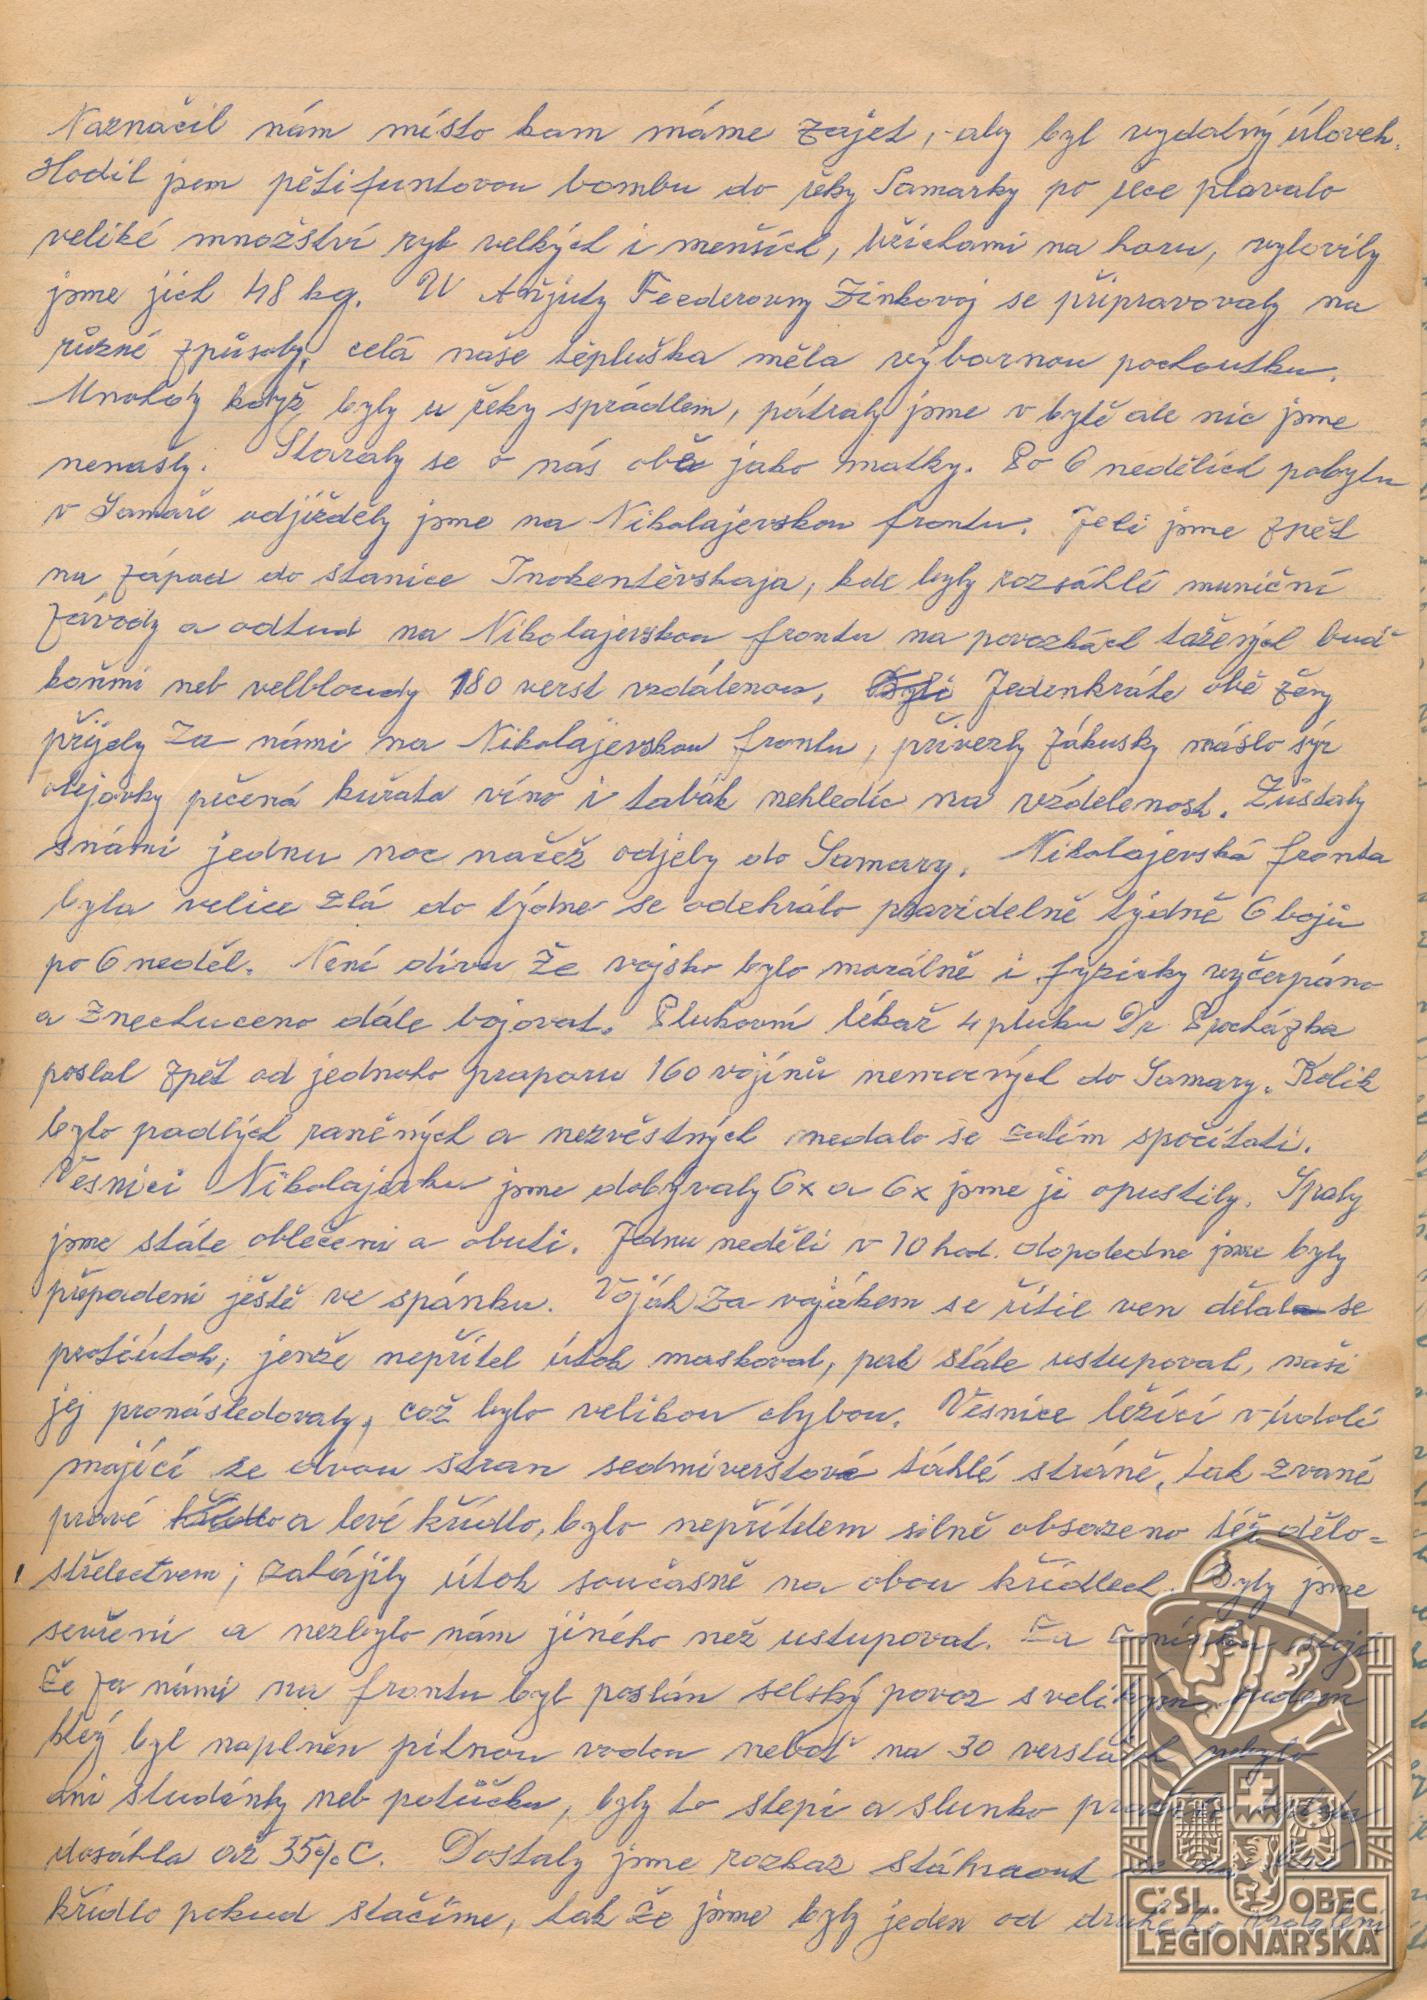 Naznačil nám místo kam máme zajet, aby byl vydatný úlovek.
Hodil jsem pětifuntovou bombu do řeky Samarky po řece plavalo
veliké množství ryb velkých i menších, břichami na horu, vylovily
jsme jich 48 kg. U Aňjuty Feederovny Zinkovoj se připravovaly na
různé způsoby, celá naše těpluška měla výbornou pochoutku.
Mnohdy když byly u řeky sprádlem, pátraly jsme v bytě ale nic jsme
nenašly. Staraly se o nás obě jako matky. Po 6 nedělích pobytu
v Samaře odjížděly jsme na Nikolajevskou frontu. Jeli jsme zpět
na západ do stanice Inokentěvskaja, kde byly rozsáhlé muniční
závody a odtud na Nikolajevskou frontu na povozkách tažených buď
koňmi neb velbloudy 180 verst vzdálenou, Byli Jedenkráte obě ženy
přijely za námi na Nikolajevskou frontu, přivezly zákusky máslo sýr
olejovky pečená kuřata víno i tabák nehledíc na vzdelenost. Zůstaly
snámi jednu noc načež odjely do Samary. Nikolajevská fronta
byla velice zlá do týdne se odehrálo pravidelně týdně 6 bojů
po 6 neděl. Není divu že vojsko bylo morálně i fyzicky vyčerpáno
a znechuceno dále bojovat. Plukovní lékař 4 pluku Dr Procházka
poslal zpět od jednoho praporu 160 vojínů nemocných do Samary. Kolik
bylo padlých raněných a nezvěstných nedalo se zatím spočítati.
Vesnici Nikolajevku jsme dobyvaly 6x a 6x jsme ji opustily. Spaly
jsme stále oblečeni a obuti. Jednu neděli v 10 hod. dopoledne jsme byly
přepadeni ještě ve spánku. Voják za vojákem se řítil ven dělal se
protiútok, jenže nepřítel útok maskoval, pak stále ustupoval, naši
jej pronásledovaly, což bylo velikou chybou. Vesnice ležící v údolí
mající ze dvou stran sedmiverstové táhlé stráně, tak zvané
pravé křídlo a levé křídlo, bylo nepřítelem silně obsazeno též dělo-
střelectvem; zahájily útok současně na obou křídlech. Byly jsme
sevřeni a nezbylo nám jiného než ustupovat. Za zmínku stojí
že za námi na frontu byl poslán selský povoz s velikým sudem
kteý byl naplněn pitnou vodou neboť na 30 verstách nebylo
ani studánky neb potůčku, byly to stepi a slunko
dosáhla až 35% C. Dostaly jsme rozkaz stáhnout se na
křídlo pokud stačíme, tak že jsme byly jeden od druhého vzdáleni
ČSL. OBEC
LEGIONÁŘSKÁ